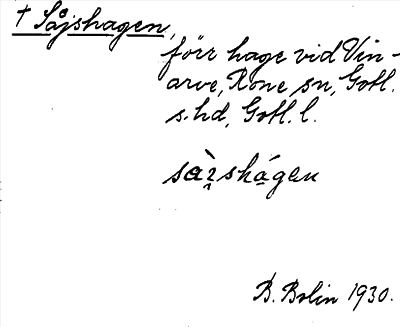 † Såjshagen,
förr hage vid Vin-
arve, Rone sn, Gotl.
s. hd, Gotl. l.
sàı̯shágen
B. Bolin 1930.